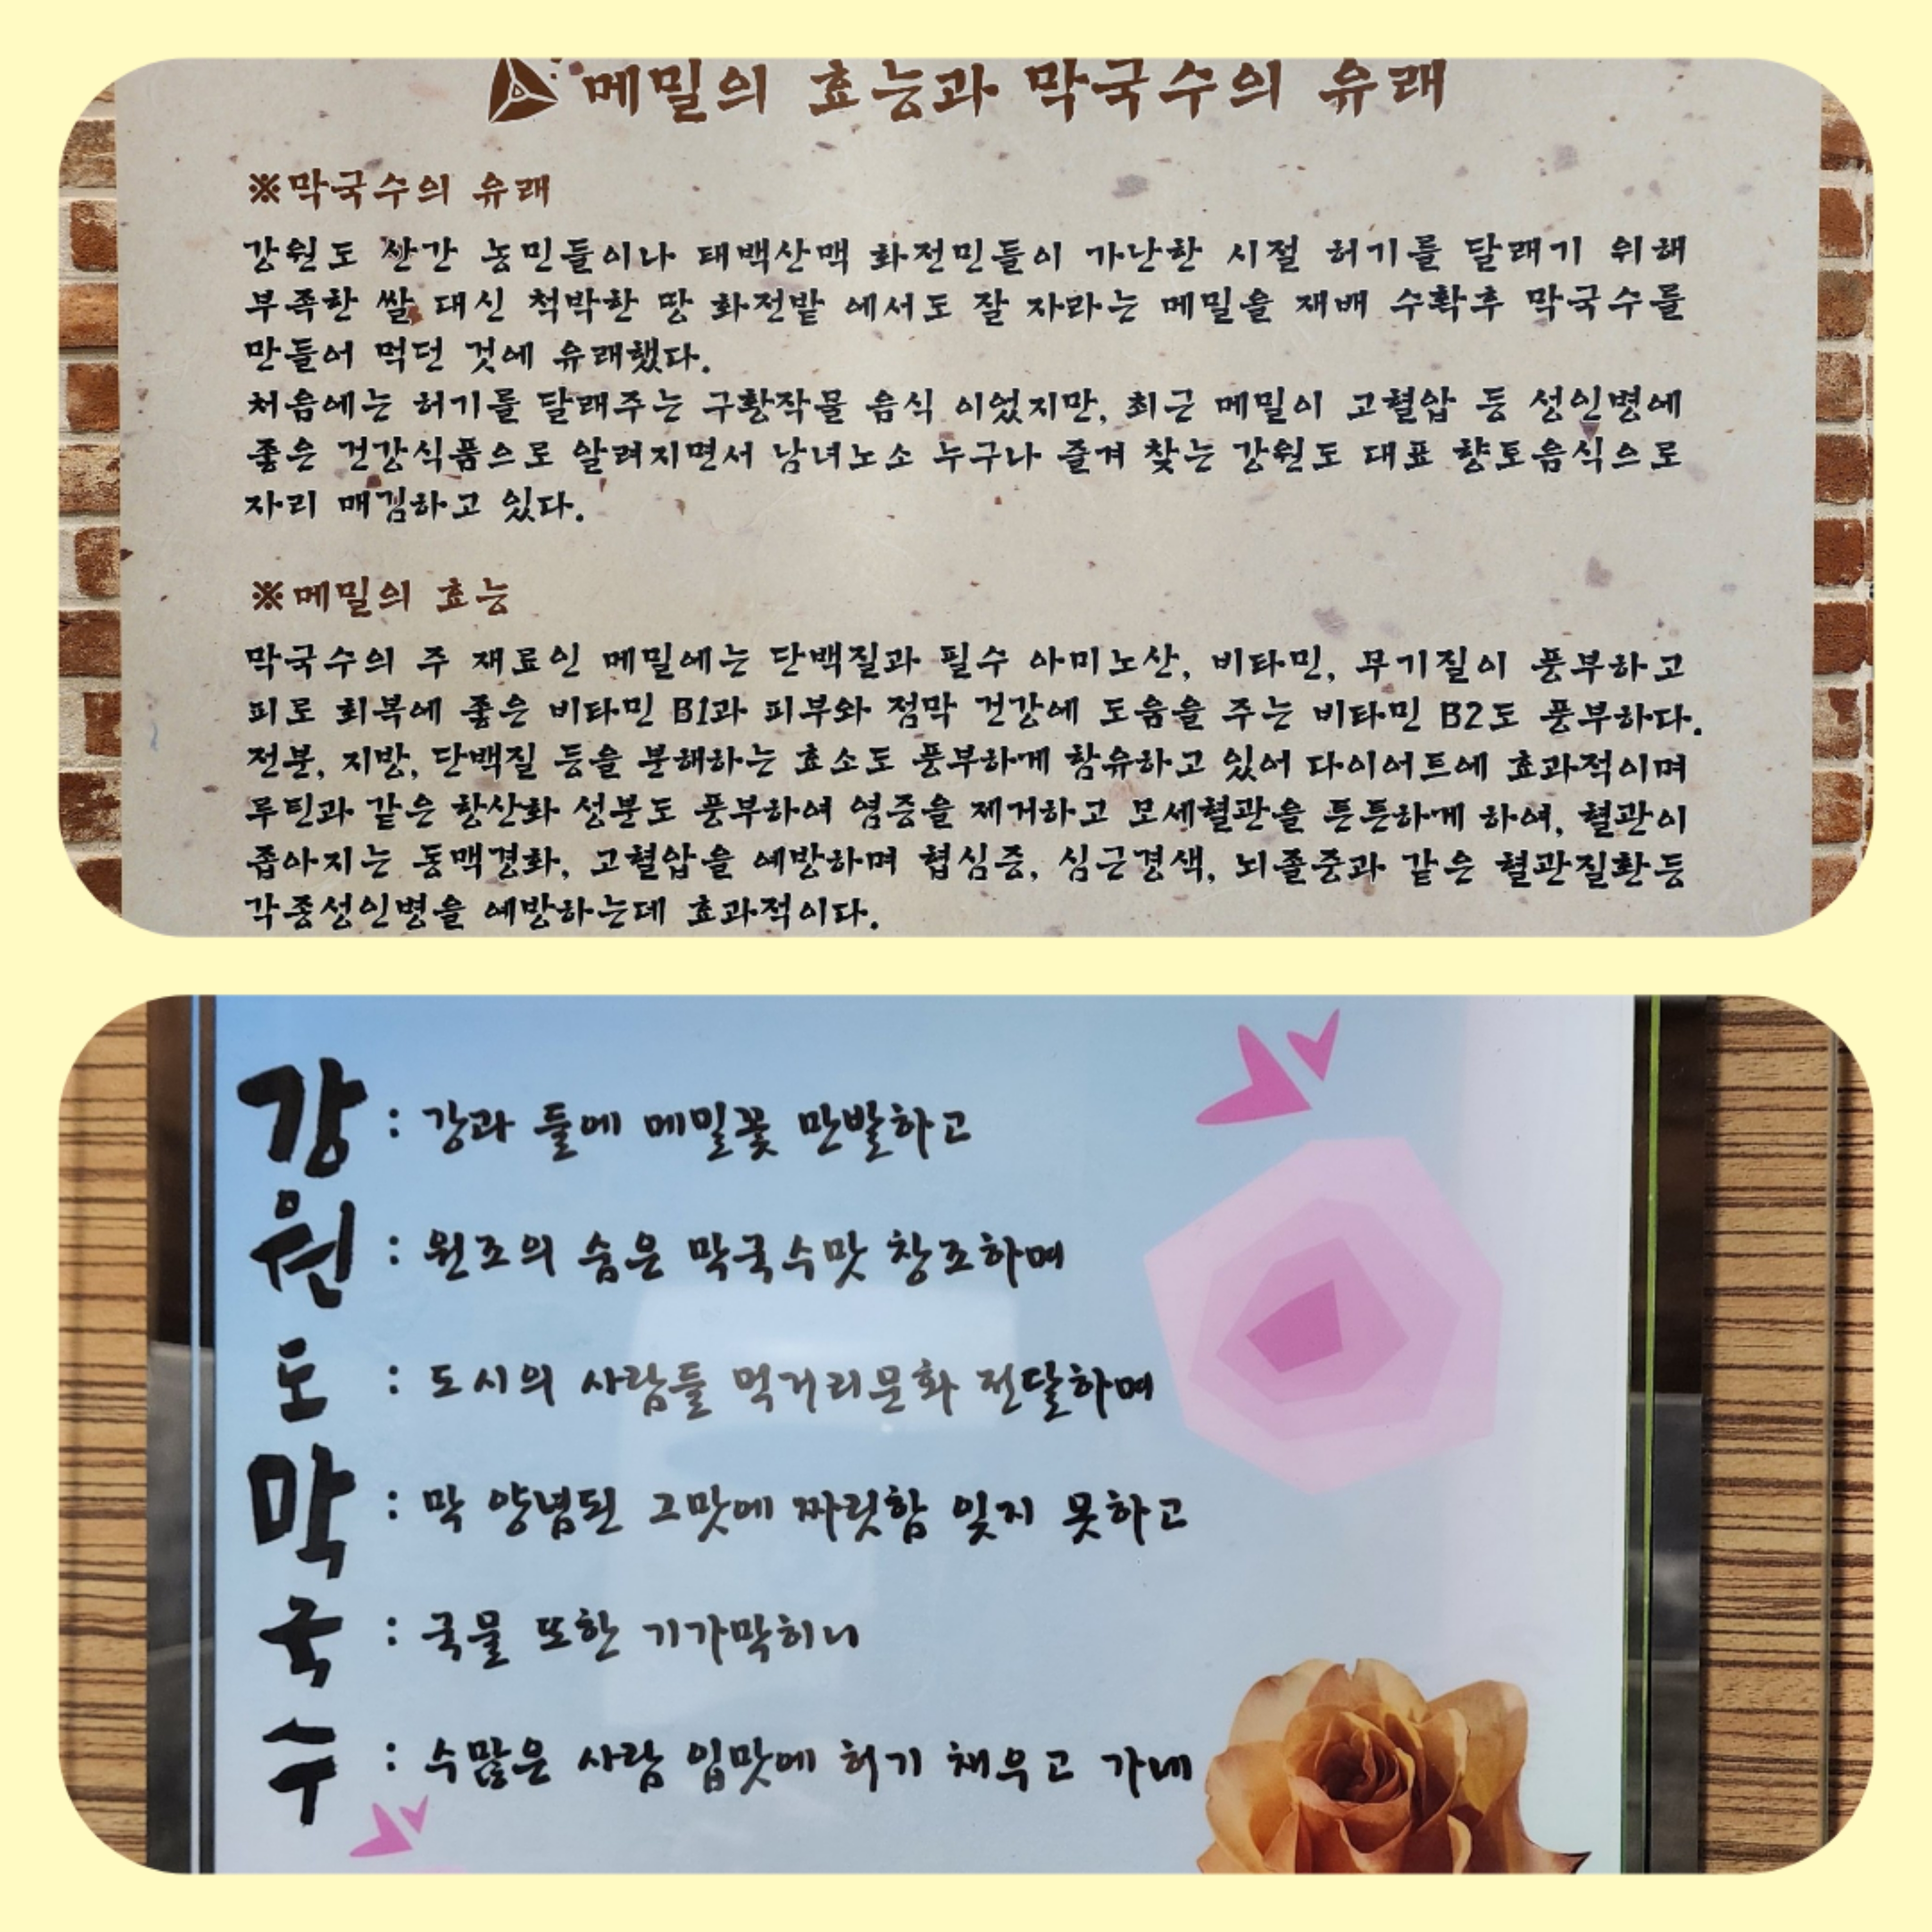 메밀의 효능과 막국수의 유래
※막국수의 유래
강원도 산간 농민들이나 태백산맥 화전민들이 가난한 시절 허기를 달래기 위해
부족한 쌀 대신 척박한 땅 화전밭 에서도 잘 자라는 메밀을 재배 수확후 막국수를
만들어 먹던 것에 유래했다.
처음에는 허기를 달래주는 구황작물 음식 이었지만, 최근 메밀이 고혈압 등 성인병에
좋은 건강식품으로 알려지면서 남녀노소 누구나 즐겨 찾는 강원도 대표 향토음식으로
자리 매김하고 있다.
※메밀의 효능
막국수의 주 재료인 메밀에는 단백질과 필수 아미노산, 비타민, 무기질이 풍부하고
피로 회복에 좋은 비타민 B1과 피부와 점막 건강에 도움을 주는 비타민 B2도 풍부하다.
전분, 지방, 단백질 등을 분해하는 효소도 풍부하게 함유하고 있어 다이어트에 효과적이며
루틴과 같은 항산화 성분도 풍부하여 염증을 제거하고 모세혈관을 튼튼하게 하여, 혈관이
좁아지는 동맥경화, 고혈압을 예방하며 협심증, 심근경색, 뇌졸중과 같은 혈관질환등
각종성인병을 예방하는데 효과적이다.
강 : 강과 들에 메밀꽃 만발하고
원 : 원조의 숨은 막국수맛 창조하며
도 : 도시의 사람들 먹거리문화 전달하며
막 : 막 양념된 그맛에 짜릿함 잊지 못하고
국 : 국물 또한 기가막히니
수 : 수많은 사람 입맛에 허기 채우고 가네